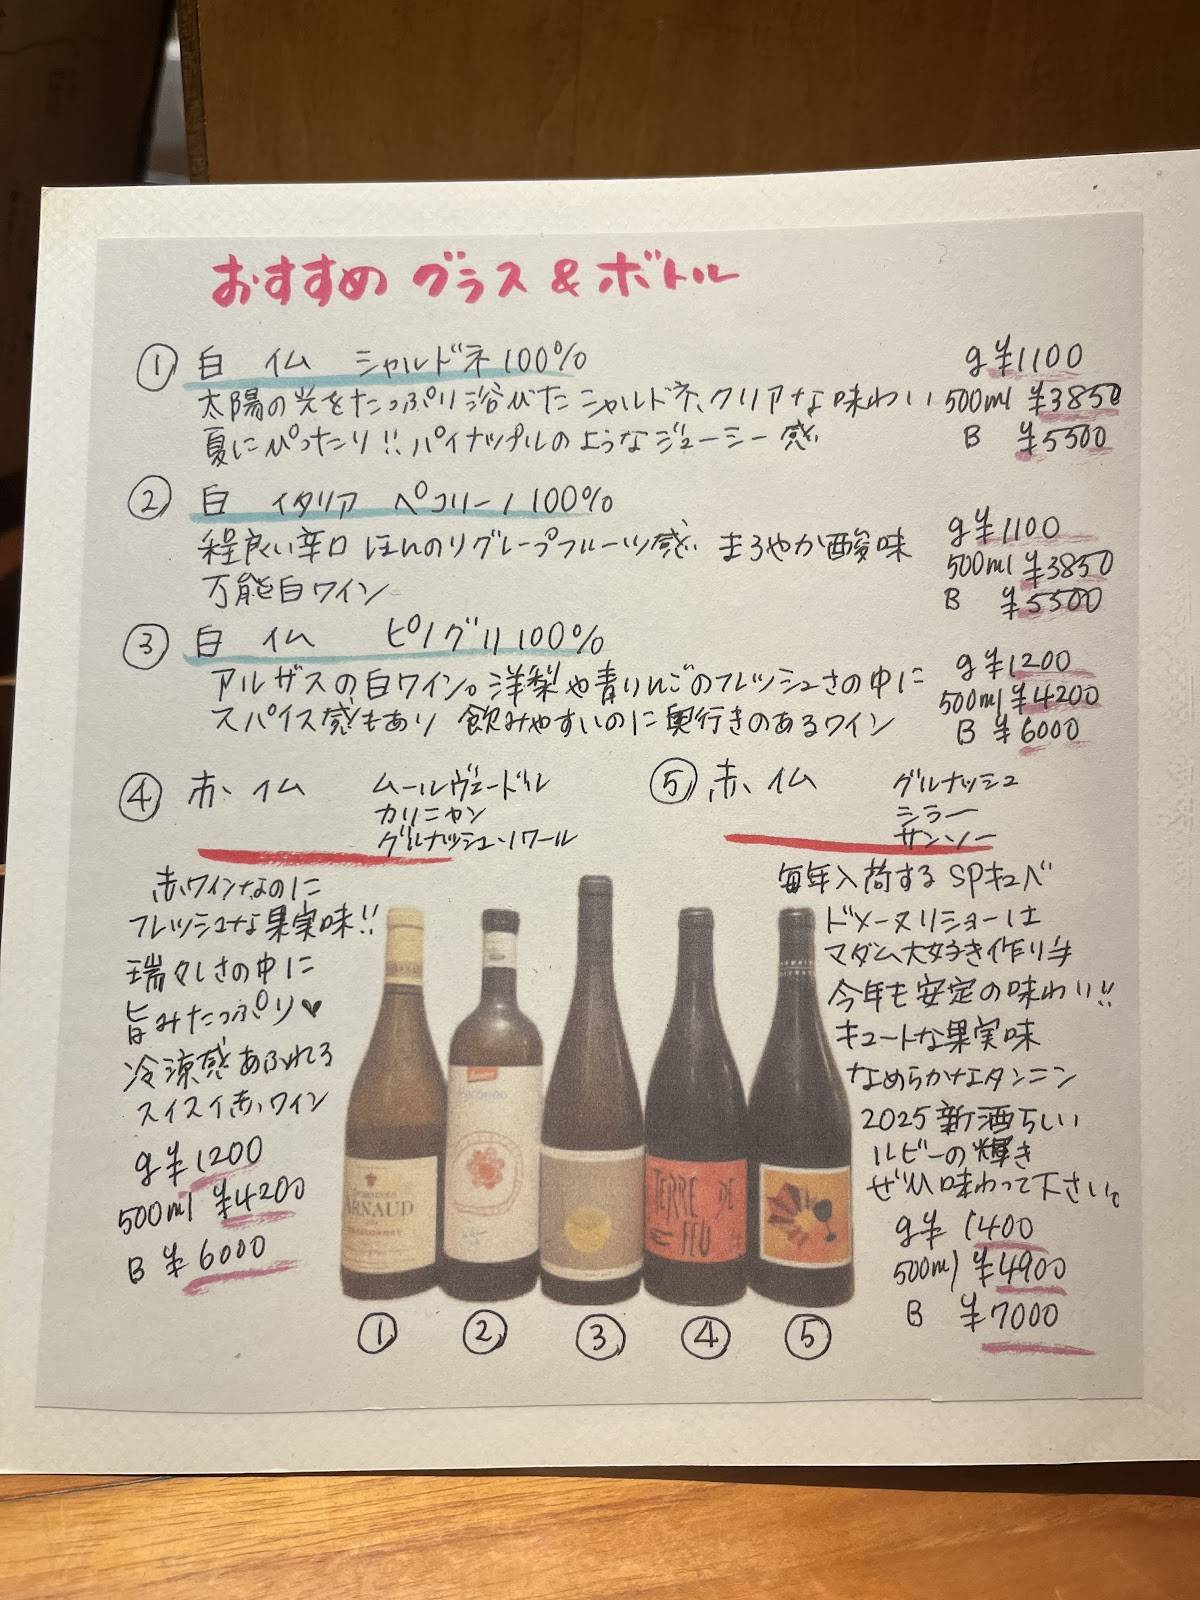 おすすめ グラス & ボトル
① 白 仏 シャルドネ 100% g ¥1100
太陽の光をたっぷり浴びたシャルドネ、クリアな味わい 500ml ¥3850
夏にぴったり!! パイナップルのようなジューシー感 B ¥5500
② 白 イタリア ペコリーノ 100%
程良い辛口 ほんのりグレープフルーツ感 まろやか酸味 g ¥1100
万能白ワイン 500ml ¥3850
B ¥5500
③ 白 仏 ピノグリ 100%
アルザスの白ワイン。洋梨や青りんごのフレッシュさの中に g ¥1200
スパイス感もあり 飲みやすいのに奥行きのあるワイン 500ml ¥4200
B ¥6000
④ 赤 仏 ムールヴェードル
カリニャン
グルナッシュ・ノワール
赤ワインなのに
フレッシュな果実味!!
瑞々しさの中に
旨みたっぷり♥
冷涼感あふれる
スイスイ赤ワイン
g ¥1200
500ml ¥4200
B ¥6000
⑤ 赤 仏 グルナッシュ
シラー
サンソー
毎年入荷する SPキュベ
ドメーヌリショーは
マダム大好き作り手
今年も安定の味わい!!
キュートな果実味
なめらかなタンニン
2025新酒らしい
ルビーの輝き
ぜひ味わって下さい。
g ¥1400
500ml ¥4900
B ¥7000
ARNAUD
TERRE DE
FEU
① ② ③ ④ ⑤